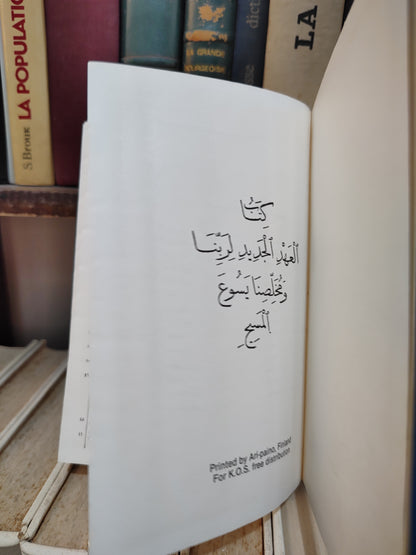 S. Brouk
LA POPULATION
LA GRANDE
BOURGEOISIE
dict
LA
كِتَابُ
ٱلْعَهْدِ ٱلْجَدِيدِ لِرَبِّنَا
وَمُخَلِّصِنَا يَسُوعَ
ٱلْمَسِيحِ
Printed by Ari-paino, Finland
For K.O.S. free distribution